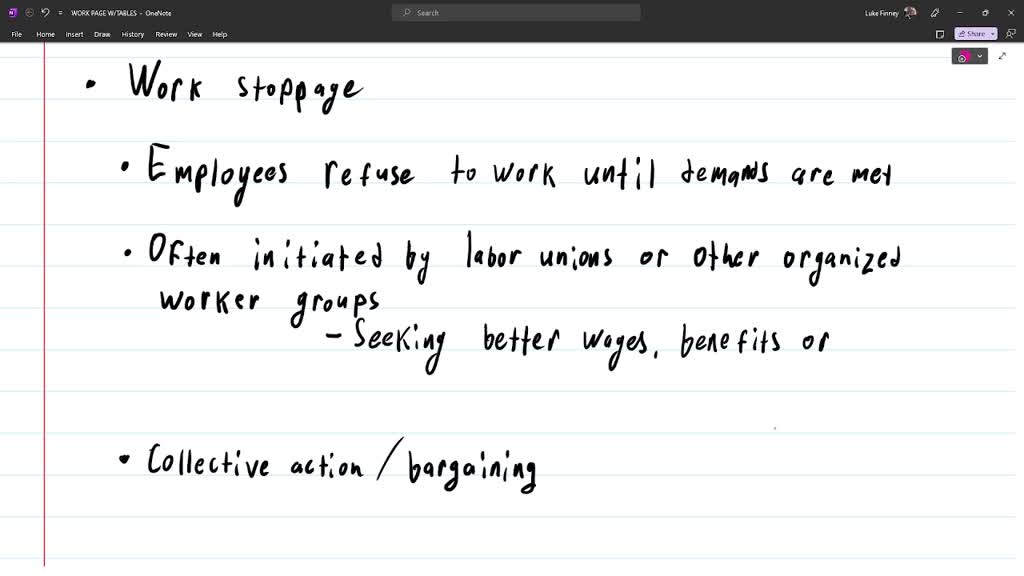 WORK PAGE W/TABLES - OneNote
Search
Luke Finney
File Home Insert Draw History Review View Help
Share
• Work stoppage
• Employees refuse to work until demands are met
• Often initiated by labor unions or other organized
worker groups
- Seeking better wages, benefits or
• Collective action / bargaining